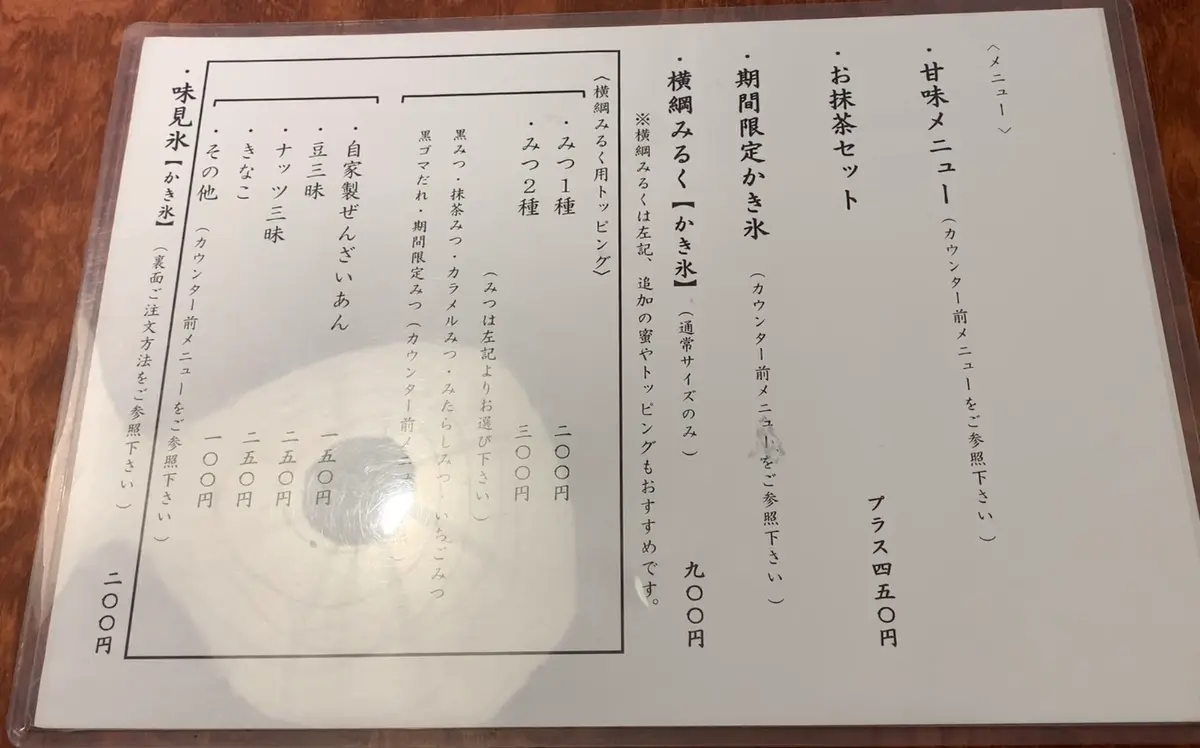 〈メニュー〉
・甘味メニュー（カウンター前メニューをご参照下さい）
・お抹茶セット　プラス四五〇円
・期間限定かき氷（カウンター前メニューをご参照下さい）
・横綱みるく【かき氷】（通常サイズのみ）九〇〇円
※横綱みるくは左記、追加の蜜やトッピングもおすすめです。
〈横綱みるく用トッピング〉
・みつ１種　二〇〇円
・みつ２種　三〇〇円
（みつは左記よりお選び下さい）
黒みつ・抹茶みつ・カラメルみつ・みたらしみつ・いちごみつ
黒ゴマだれ・期間限定みつ（カウンター前メニュ
・自家製ぜんざいあん
・豆三昧　一五〇円
・ナッツ三昧　二五〇円
・きなこ　二五〇円
・その他　一〇〇円
（カウンター前メニューをご参照下さい）
・味見氷【かき氷】（裏面ご注文方法をご参照下さい）二〇〇円